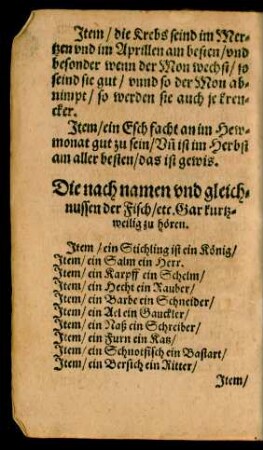 Item/ die Krebs seind im Mer-
tzen vnd im Aprillen am besten/ vnd
besonder wenn der Mon wechst/ so
seind sie gut/ vnnd so der Mon ab-
nimpt/ so werden sie auch je kren-
cker.
Item/ ein Esch facht an im Hew-
monat gut zu sein/ Vñ ist im Herbst
am aller besten/ das ist gewis.
Die nach namen vnd gleich-
nussen der Fisch/ etc. Gar kurtz-
weilig zu hören.
Item/ ein Stichling ist ein König/
Item/ ein Salm ein Herr.
Item/ ein Karpff ein Schelm/
Item/ ein Hecht ein Rauber/
Item/ ein Barbe ein Schneider/
Item/ ein Ael ein Gauckler/
Item/ ein Naß ein Schreiber/
Item/ ein Furn ein Katz/
Item/ ein Schnotfisch ein Bastart/
Item/ ein Bersich ein Ritter/
Item/